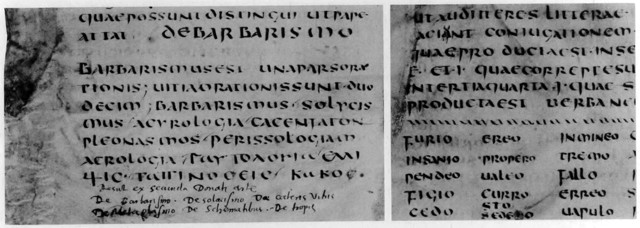 QUAEPOSSUNTDISTINGUI UTPAPE
ATTAI. DEBARBARISMO
BARBARISMUSEST UNAPARSORA
TIONIS; UITIAORATIONISSUNT DUO
DECIM; BARBARISMUS. SOLYCIS
MUS ACYROLOGIA CACENFATON
PLEONASMOS PERISSOLOGIA M
ACROLOGIA TAYTOLOΓIA
De barbarismo De solœcismo De ceteris Vitiis
De Metaplasmo De Schematibus. De tropis
UTAUDITERES LITTERAE
CONIUGATIONEM
QUAEPRO DUCTAEST INSE
E ET I QUAECORREPTESU
INTERTIAQUARTA I QUAE S
PRODUCTAEST UERBANE
FURIO EREO INMINEO
INSANIO PROPERO TREMO
PENDEO UALEO FALLO
FIGIO CURRO ERREO
CEDO STO UAPULO